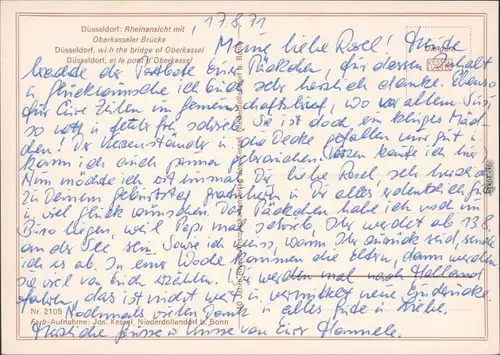 17.8.71
Düsseldorf: Rheinansicht mit
Oberkasseler Brücke
Düsseldorf, with the bridge of Oberkassel
Düsseldorf, et le pont d'Oberkassel
Meine liebe Rosel! Heute
brachte der Postbote Euer Päckchen, für dessen Inhalt
u. Glückwünsche ich Euch sehr herzlich danke. Ebenso
für Eure Zeilen im Gemeinschaftsbrief, wo vor allem Susi
so nett u. schrieb. Sie ist doch ein kluges Mäd
chen! Der u. die Decke gefallen mir gut u.
kann ich auch prima gebrauchen. kaufe ich hier
Nun möchte ich erst einmal Dir liebe Rosel, sehr herzlich
zu Deinem Geburtstag gratulieren u. Dir alles erdenklich Gute
u. viel Glück wünschen. Das Päckchen habe ich noch im
Büro liegen, weil Papi mal schrieb, Ihr werdet ab 13.8.
an der See sein. Sowie ich weiss, wann Ihr zurück seid, sende
ich es ab. In einer Woche kommen die Eltern, dann werden
sie viel von Euch erzählen. Wir werden mal nach Holland
fahren, dass ist nicht weit u. vermittelt neue Eindrücke.
Nochmals vielen Dank u. alles Gute u. Liebe.
Herzliche Grüsse u. Küsse von Eurer Hannele.
Nr. 2105
Farb-Aufnahme: Jos. Kessel, Niederdollendorf b. Bonn